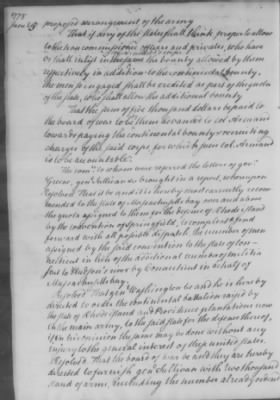 1778
June 25 proposed arrangement of the army
That if any of the states shall think proper to allow
to the non commissioned officers and privates, who have
or shall inlist in the same the bounty allowed by them
respectively in addition to the continental bounty,
the men so engaged shall be credited as part of the quota
of the state, who shall allow the additional bounty
That the sum of five thousand dollars be paid to
the board of war to be by them advanced to col. Armand
towards paying the continental bounty & recruiting
charges of the said corps, for which sum col. Armand
is to be accountable.
The com to whom were referred the letters of govr
Greene, genl Sullivan &c brought in a report, whereupon
Resolved That it be and it is hereby most earnestly recom
mended to the state of Massachusetts bay over and above
the quota assigned to them for the defence of Rhode Island
by the convention of Springfield, to compleat & send
forward with all possible dispatch the number of men
assigned by the said convention to the state of Con-
necticut in lieu of the additional number of militia
sent to Hudson's river by Connecticut in behalf of
Massachusetts bay.
Resolved That genl Washington be and he is hereby
directed to order the continental battalion raised by
the state of Rhode Island and Providence plantations now
in the main army, to the said state for the defence thereof,
if in his opinion the same may be done without any
injury to the general interest of these united states.
Resolved That the board of war be and they are hereby
directed to furnish genl Sullivan with two thousand
stand of arms, including the number already ordered